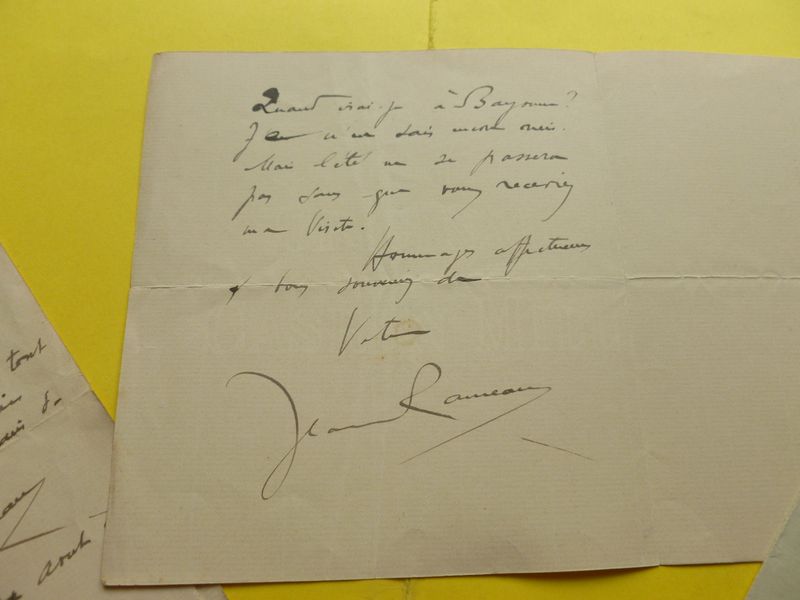 Quand irai-je à Bayonne?
Je n'en sais encore rien.
Mais l'été ne se passera
pas sans que vous receviez
ma visite.
Hommages affectueux
& bons souvenirs de
Votre
Jean Rameau
tout
août